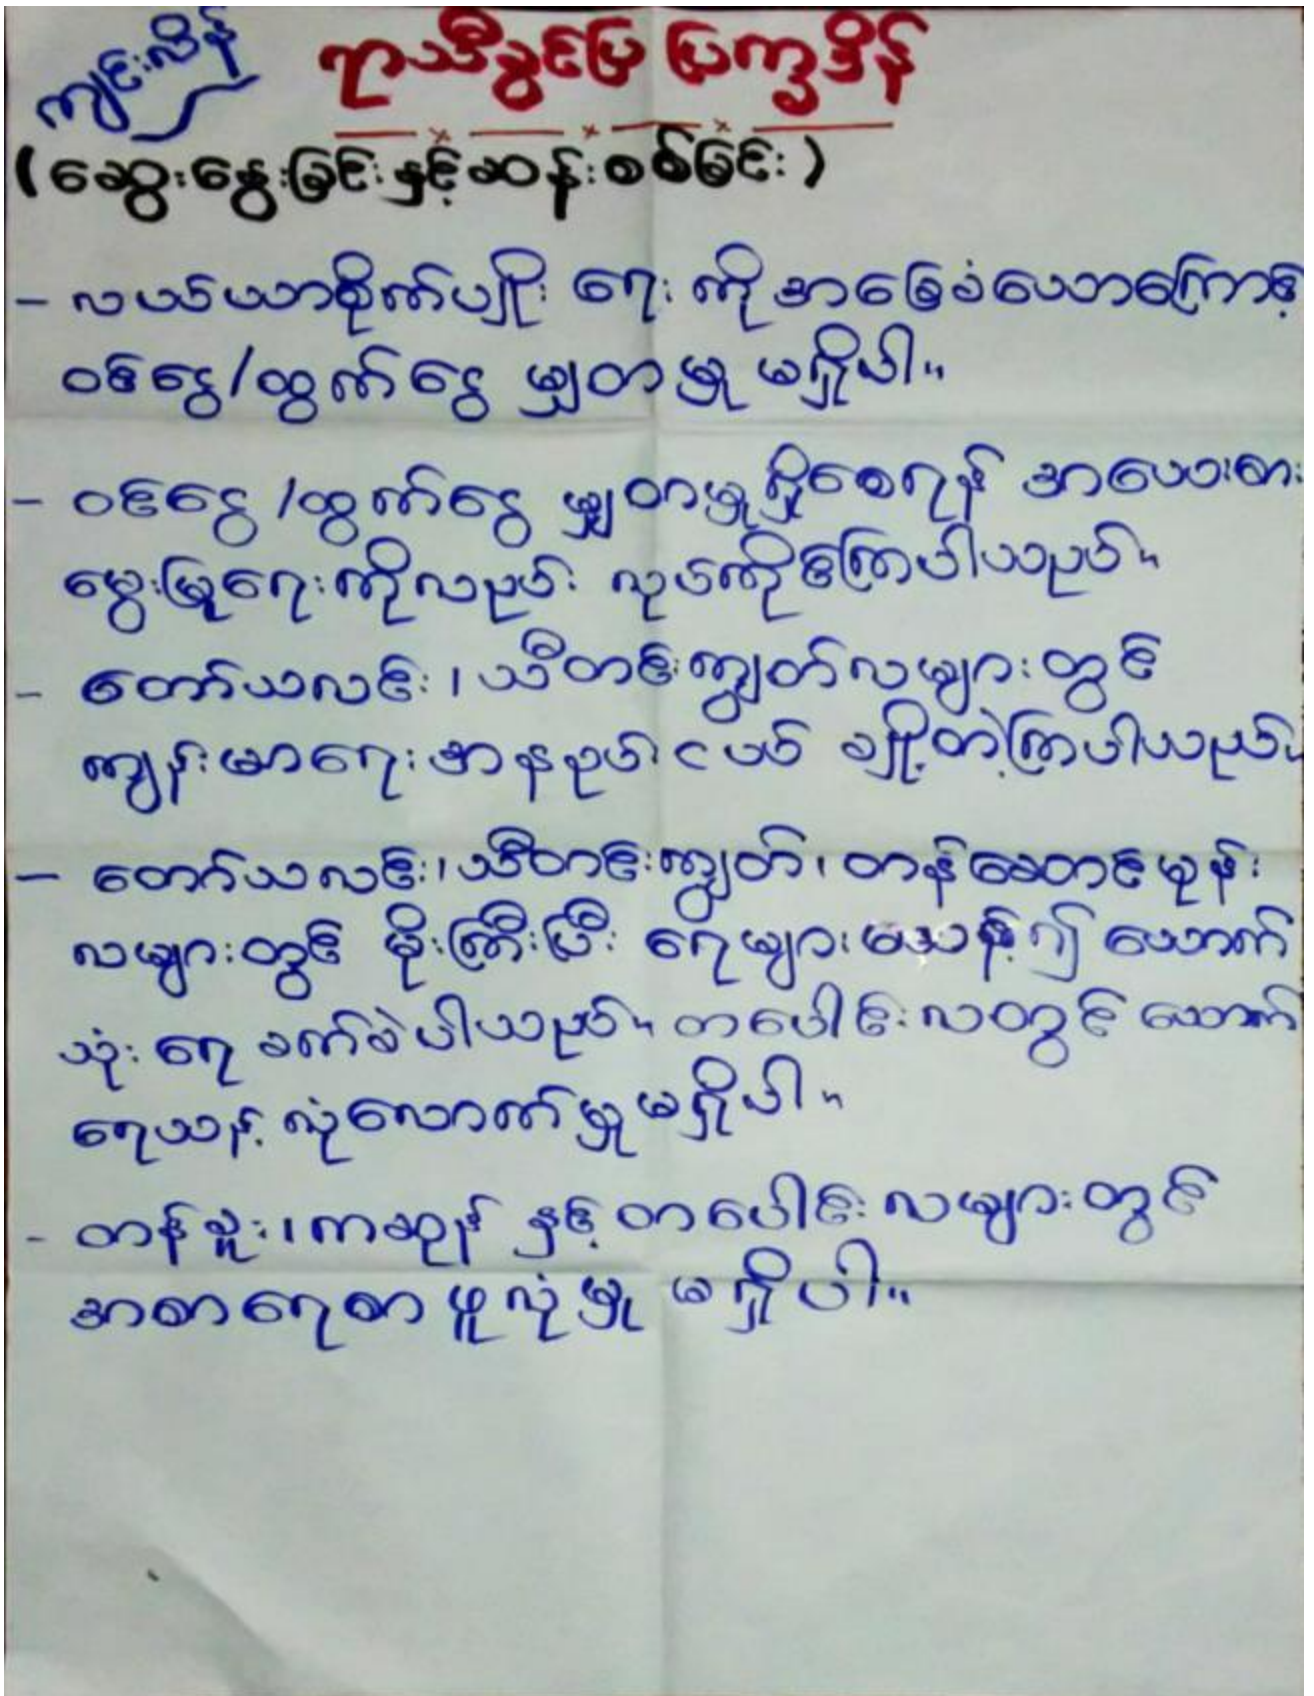 ကျင်းလိန်
ရာသီခွင်ပြ ပြက္ခဒိန်
(ဆွေးနွေးခြင်းနှင့်ဆန်းစစ်ခြင်း)
- လယ်ယာစိုက်ပျိုး ရေး ကို အခြေခံသောကြောင့်
ဝင်ငွေ/ထွက်ငွေ မျှတမှု မရှိပါ။
- ဝင်ငွေ/ထွက်ငွေ မျှတမှုရှိစေရန် အသေးစား
မွေးမြူရေးကိုလည်း လုပ်ကိုင်ကြပါသည်။
- တော်သလင်း၊ သီတင်းကျွတ်လများတွင်
ကျန်းမာရေးအနည်းငယ် ချို့တဲ့ကြပါသည်။
- တော်သလင်း၊သီတင်းကျွတ်၊ တန်ဆောင်မုန်း
လများတွင် မိုးကြီးပြီး ရေများမသန့်၍ သောက်
သုံး ရေ ခက်ခဲပါသည်။ တပေါင်းလတွင် သောက်
ရေသန့် လုံလောက်မှုမရှိပါ။
- တန်ခူး၊ကဆုန် နှင့် တပေါင်း လများတွင်
အစာရေစာ ဖူလုံမှု မရှိပါ။